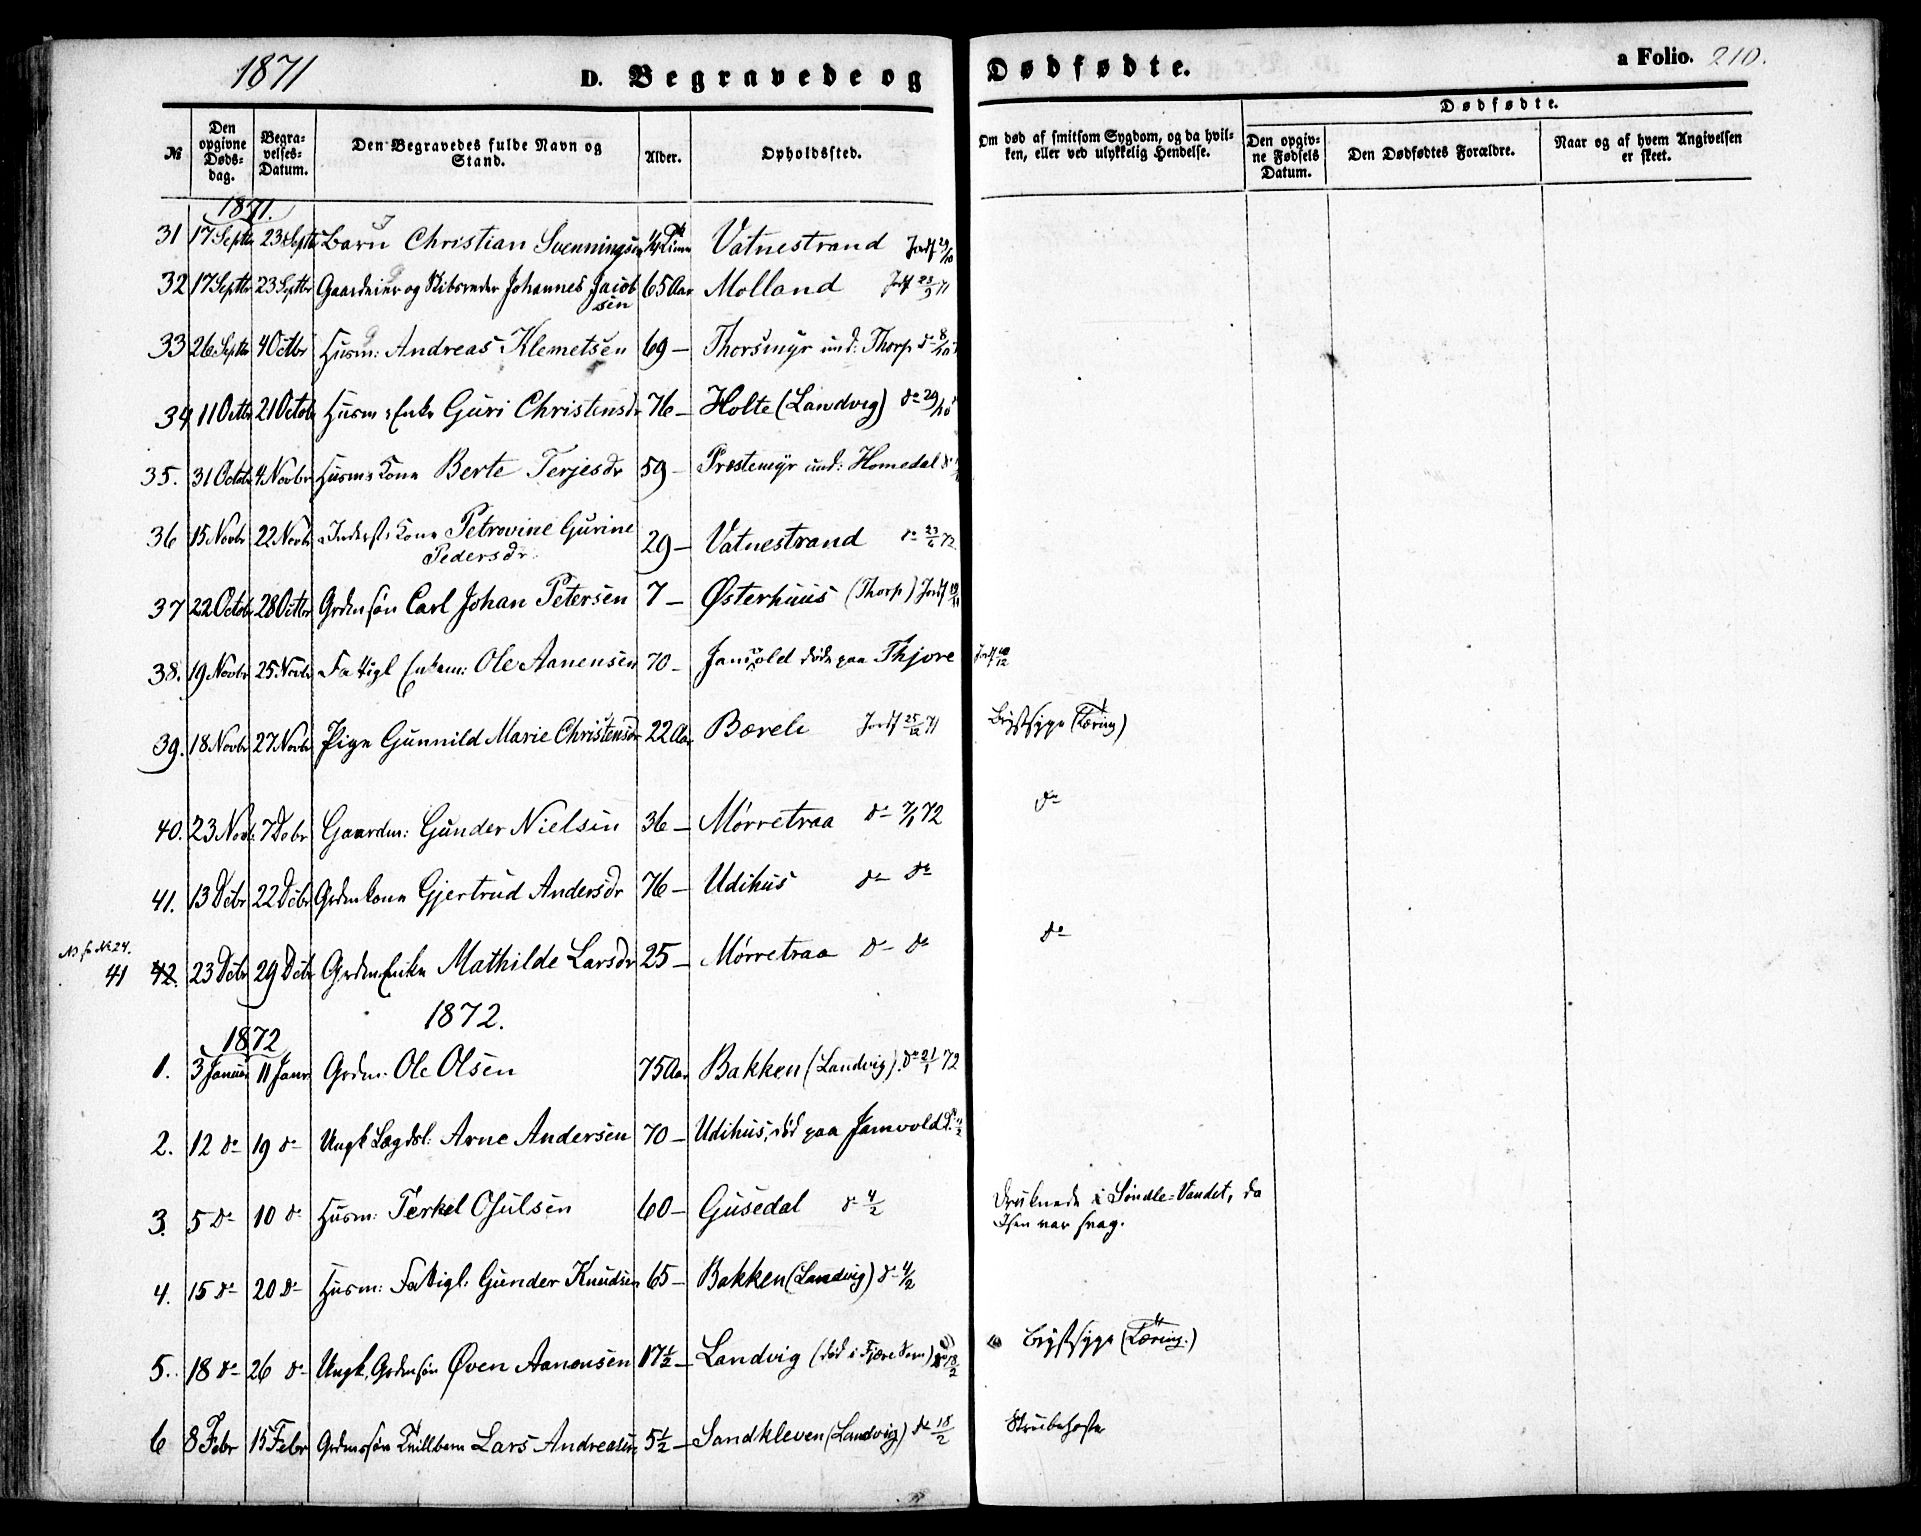 1871
D. Begravede og Dødfødte.
a Folio. 210.
№
Den opgivne Døds-dag.
Begra-velses-Datum.
Den Begravedes fulde Navn og Stand.
Alder.
Opholdssted.
Om død af smitsom Sygdom, og da hvil-ken, eller ved ulykkelig Hendelse.
Dødfødte.
Den opgiv-ne Fødsels Datum.
Den Dødfødtes Forældre.
Naar og af hvem Angivelsen er skeet.
1871.
31 17 Septbr 23 Septbr Barn Christian Svenningsen Vatnestrand Jordf 29/10
32 17 Septbr 23 Septbr Gaardeier og Skibsreder Johannes Jacob
sen 65 Aar Molland Jordf 23/9 71
33 26 Septbr 4 Octbr Husm: Andreas Klemetsen 69 – Thorsmyr und: Thorp do 8/10
34 11 Octbr 21 Octob Husm: Enke Guri Christensdr 76 – Holte (Landvig) do 29/10
35. 31 Octobr 4 Novbr Husm: Kone Berte Terjesdr 59 – Prestemyr und: Homedal do
36 15 Novbr 22 Novbr Inderst: Kone Petrovine Gurine
Pedersdr 29 – Vatnestrand do 23/6 72
37 22 Octobr 28 Octbr Grdmsøn Carl Johan Petersen 7 – Østerhuus (Thorp) Jordf
38. 19 Novbr 25 Novbr Fattigl Enkem: Ole Aanensen 70 – Jamvold døde paa Thjore Jordf 10/12
39. 18 Novbr 27 Novbr Pige Gunnild Marie Christensdr 22 Aar Bæreli Jordf 25/12 71 Brystsyge (Tæring)
40. 23 Novb. 7 Debr Gaardm: Gunder Nielsen 36 – Mørretraa do 7/1 72 do
41. 13 Debr 22 Debr Grdmkone Gjertrud Andersdr 76 – Udihus do do
NB fr No 24.
41 42. 23 Debr 29 Debr Grdm Enke Mathilde Larsdr 25 – Mørretraa do do do
1872.
1872
1. 3 Januar 11 Janr Grdm. Ole Olsen 75 Aar Bakken (Landvig). do 21/1 72
2. 12 do 19 do Ungk Lægdsl: Arne Andersen 70 – Udihus, død paa Jamvold D. 11/2
3. 5 do 10 do Husm: Terkel Osulsen 60 – Gusedal do 4/2 Druknede i Søndle-Vandet, da
Isen var svag.
4. 15 do 20 do Husm: Fattigl: Gunder Knudsen 65 – Bakken (Landvig) do 4/2
5. 18 do 26 do Ungk. Grdmsøn Øven Aanonsen 17 1/2 – Landvig (død i Fjære Sogn) do 18/2 Brystsyge (Tæring.)
6 8 Febr 15 Febr Grdmssøn Tvillbarn Lars Andreassen 5 1/2 – Sandkleven (Landvig) do 18/2 Strubehoste